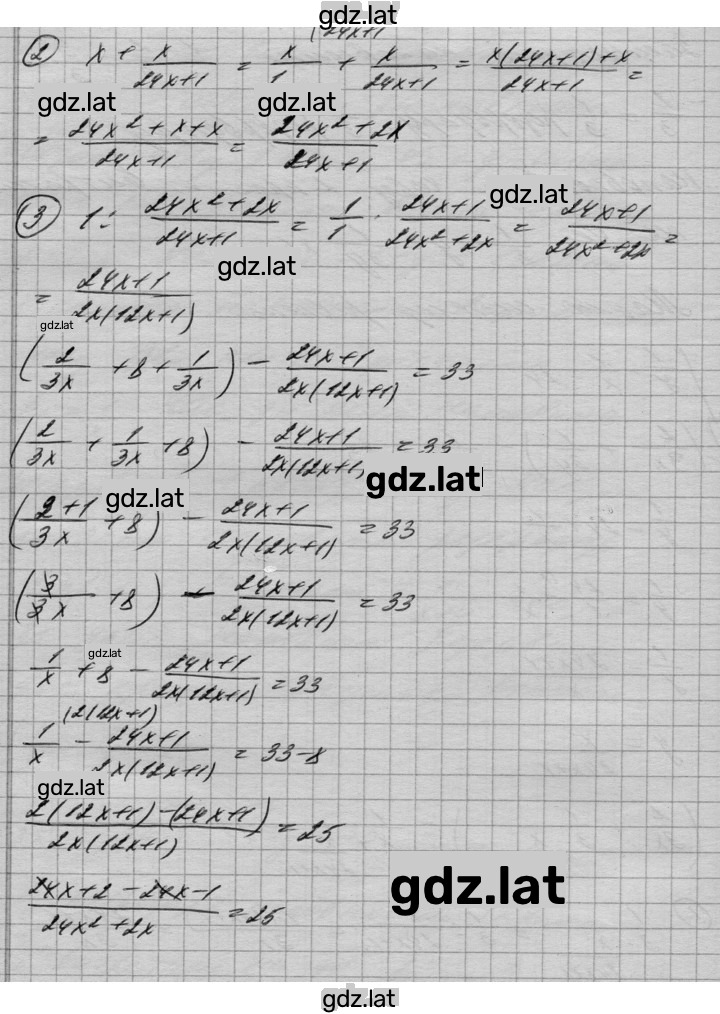 gdz.lat
(24x+1
② x + x/(24x+1) = x/1 + x/(24x+1) = (x(24x+1)+x)/(24x+1) =
gdz.lat gdz.lat
= (24x²+x+x)/(24x+1) = (24x²+2x)/(24x+1)
gdz.lat
③ 1 : (24x²+2x)/(24x+1) = 1/1 · (24x+1)/(24x²+2x) = (24x+1)/(24x²+2x) =
gdz.lat
= (24x+1)/(2x(12x+1))
gdz.lat
(2/(3x) + 8 + 1/(3x)) − (24x+1)/(2x(12x+1)) = 33
(2/(3x) + 1/(3x) + 8) − (24x+1)/(2x(12x+1, = 33
gdz.lat
gdz.lat
((2+1)/(3x) + 8) − (24x+1)/(2x(12x+1)) = 33
(3/(3x) + 8) − (24x+1)/(2x(12x+1)) = 33
gdz.lat
1/x + 8 − (24x+1)/(2x(12x+1)) = 33
(2(12x+1)
1/x − (24x+1)/(2x(12x+1)) = 33−8
gdz.lat
(2(12x+1)−(24x+1))/(2x(12x+1)) = 25
gdz.lat
(24x+2−24x−1)/(24x²+2x) = 25
gdz.lat